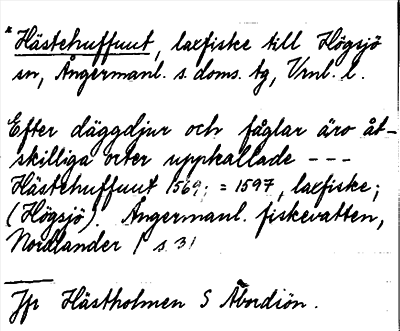 *Hästehuffuut, laxfiske till Högsjö
sn, Ångermanl. s. doms. tg, Vrnl. l.
Efter däggdjur och fåglar äro åt-
skilliga orter uppkallade ---
Hästehuffuut 1569; = 1597, laxfiske;
(Högsjö). Ångermanl. fiskevatten,
Nordlander s 31
Jfr Hästholmen S Åbordiön.